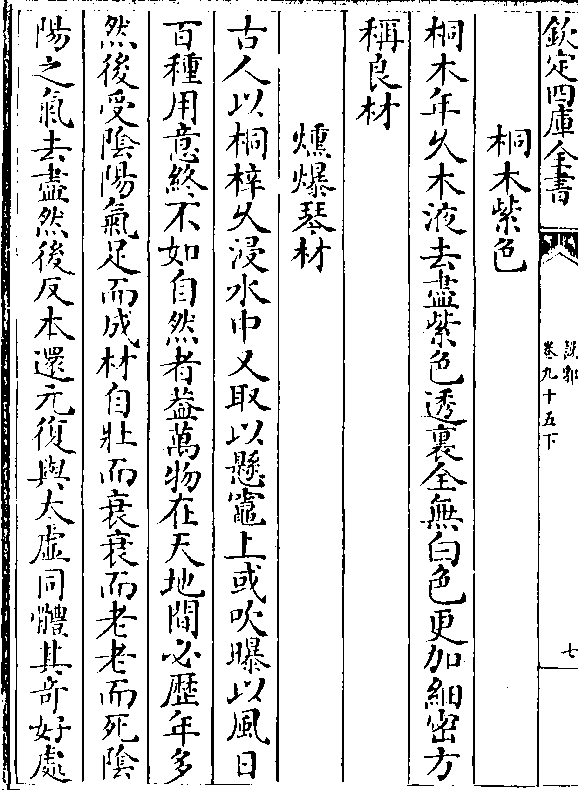 欽定四庫全書
說郛
卷九十五下
七
桐木紫色
桐木年久木液去盡紫色透裏全無白色更加細密方
稱良材
燻爆琴材
古人以桐梓久浸水中又取以懸竈上或吹曝以風日
百種用意終不如自然者葢萬物在天地間必歴年多
然後受陰陽氣足而成材自壯而衰衰而老老而死陰
陽之氣去盡然後反本還元復與大虛同體其奇好處